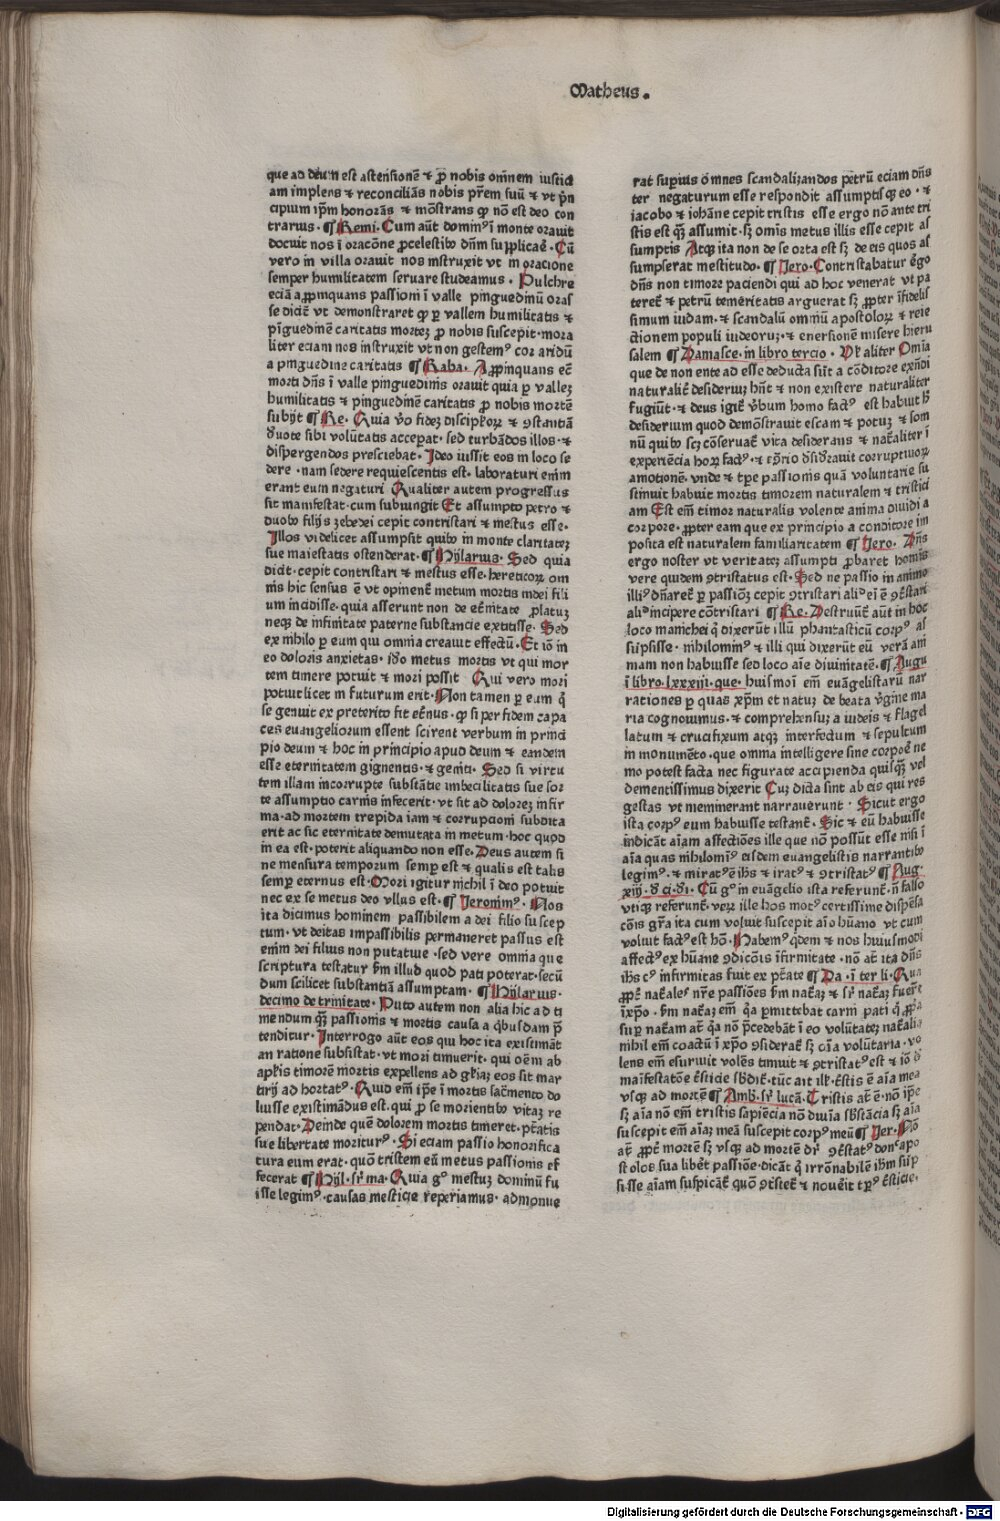 Matheus.
que ad deum est astensionē ⁊ ꝓ nobis omnem iustici
am implens ⁊ reconciliās nobis prēm suū ⁊ vt pn
cipium ipm honorās ⁊ mōstrans ꝙ nō est deo con
trarius · ¶ Remi. Cum aūt dominꝰ ī monte orauit
docuit nos ī oracōne ꝓ celestibꝰ dn̄m supplicaē · Cū
vero in villa orauit nos instruxit vt in oracione
semper humilitatem seruare studeamus . Pulchre
eciā appinquans passioni ī valle pinguedinū oras
se dicit vt demonstraret ꝙ ꝑ vallem humilitatis ⁊
pīguedinē caritatis mortez ꝓ nobis suscepit · mora
liter eciam nos instruxit vt non gestemꝰ cor aridū
a pinguedine caritatis ¶ Raba. Appinquans eē
morti dn̄s ī valle pinguedinis orauit quia ꝑ vallez
humilitatis ⁊ pinguedinē caritatis ꝓ nobis mortē
subijt ¶ Re. Quia v̄o fidez discipl'oꝝ ⁊ ꝯstantiā
deuote sibi volūtatis acceperat · sed turbādos illos · ⁊
dispergendos presciebat · Ideo iussit eos in loco se
dere · nam sedere requiescentis est · laboraturi enim
erant eum negaturi Qualiter autem progressus
sit manifestat · cum subiungit Et assumpto petro ⁊
duobꝰ filijs zebedei cepit contristari ⁊ mestus esse ·
Illos videlicet assumpsit quibꝰ in monte claritatez
sue maiestatis ostenderat · ¶ Hylarius · Sed quia
dicit · cepit contristari ⁊ mestus esse · hereticoꝝ om
nis hic sensus ē vt opinent' metum mortis in dei fili
um incidisse · quia asserunt non de et'nitate platuz
neqꝫ de infinitate paterne substancie extitisse · Sed
ex nihilo ꝑ eum qui omnia creauit effectū · Et iō in
eo doloris anxietas · ideo metus mortis vt qui mor
tem timere potuit ⁊ mori possit Qui vero mori
potuit licet in futurum erit · Non tamen ꝑ eum q̄
se genuit ex preterito sit et'nus · ꝙ si per fidem capa
ces euangeliorum essent scirent verbum in princi
pio deum ⁊ hoc in principio apud deum ⁊ eandem
esse eternitatem gignentis · ⁊ geniti · Sed si virtu
tem illam incorrupte substātie imbecilitas sue sor
te assumptio carnis infecerit · vt sit ad dolorez infir
ma · ad mortem trepida iam ⁊ corrupcioni subdita
erit ac sic eternitate demutata in metum · hoc quod
in ea est · poterit aliquando non esse · Deus autem si
ne mensura temporum semꝑ est ⁊ qualis est talis
semꝑ eternus est · Mori igitur nichil ī deo potuit
nec ex se metus deo vllus est · ¶ Jeronimꝰ · Nos
ita dicimus hominem passibilem a dei filio suscep
tum · vt deitas impassibilis permaneret passus est
enim dei filius non putatiue · sed vere omnia que
scriptura testatur sm̄ illud quod pati poterat · secū
dum scilicet substantiā assumptam · ¶ Hylarius ·
decimo de trinitate · Puto autem non alia hic ad ti
mendum qꝫ passionis ⁊ mortis causa a qbusdam p̄
tenditur · Interrogo aūt eos qui hoc ita existimāt
an ratione subsistat · vt mori timuerit · qui oēm ab
aplīs timorē mortis expellens ad glīaꝫ eos sit mar
tirij ad hortatꝰ · Quid em̄ ipē ī mortis sacmento do
luisse existimādus est · qui ꝓ se morientibꝰ vitaz re
pendat · Deinde quē dolorem mortis timeret · pt̄atis
sue libertate moriturꝰ · Si eciam passio honorifica
tura eum erat · quō tristem eū metus passionis ef
fecerat ¶ Hyl. sr̄ ma · Quia gͦ mestuz dominū fu
isse legimꝰ · causas mesticie reperiamus · admonue
rat supius omnes scandalizandos petrū eciam dn̄s
ter negaturum esse respondit assumptisqꝫ eo · ⁊
iacobo ⁊ iohāne cepit tristis esse ergo nō ante tri
stis est qꝫ assumit · sꝫ omis metus illis esse cepit as
sumptis Atqꝫ ita non de se orta est sꝫ de eis quos as
sumpserat mestitudo · ¶ Jero · Contristabatur ergo
dn̄s non timore paciendi qui ad hoc venerat vt pa
teret' ⁊ petrū temeritatis arguerat sꝫ ꝓpter īfidelis
simum iudam · ⁊ scandalū omniū apostoloꝝ ⁊ reie
ctionem populi iudeoruꝫ · ⁊ euersionē misere hieru
salem ¶ Damasce. in libro tercio · Vl' aliter Omīa
que de non ente ad esse deducta sūt a cōditore exn̄di
naturalit' desideriuꝫ hn̄t ⁊ non existere naturaliter
fugiūt · ⁊ deus igit' v̄bum homo factꝰ est habuit h̄
desiderium quod demōstrauit escam ⁊ potuꝫ ⁊ som
nū quibꝰ scꝫ cōseruat' vita desiderans ⁊ nat'aliter ī
experiēcia hoꝝ factꝰ · ⁊ ꝯrio dsiderauit corruptiuoꝝ
amotionē · vnde ⁊ tꝑe passionis quā voluntarie su
stinuit habuit mortis timorem naturalem ⁊ tristici
am Est em̄ timor naturalis volente anima diuidi a
corpore · ꝓpter eam que ex principio a conditore im
posita est naturalem familiaritatem ¶ Jero. Dn̄s
ergo noster vt veritatez assumpti ꝓbaret hominis
vere quidem ꝯtristatus est · Sed ne passio in animo
illiꝰ dn̄aret' ꝑ passionꝫ cepit ꝯtristari aliꝰ ei ē ꝯt'stari
aliꝰ incipere cōtristari ¶ Re. Destruūt' aūt in hoc
loco manichei q̄ dixerūt illū phantasticū corpꝰ as
sūpsisse · nihilominꝰ ⁊ illi qui dixerūt eū verā ani
mam non habuisse sed loco aīe diuinitatē · ¶ Augu
ī libro lxxxiij · que · huismoī em̄ euāgelistarū nar
rationes ꝑ quas xp̄m et natuꝫ de beata v̄gine ma
ria cognouimus · ⁊ comprehensuꝫ a iudeis ⁊ flagel
latum ⁊ crucifixum atqꝫ interfectum ⁊ sepultum
in monumēto · que omnia intelligere sine corpoē ne
mo potest facta nec figurate accipienda quisqꝫ vel
dementissimus dixerit Cuꝫ dicta sint ab eis qui res
gestas vt meminerant narrauerunt · Sicut ergo
ista corpꝰ eum habuisse testant' · Sic ⁊ eū habuisse
īndicāt aīam affectiōes ille que nō possūt esse nisi ī
aīa quas nihilomīꝰ eisdem euangelistis narrantibꝰ
legimꝰ · ⁊ miratꝰ ē ihs ⁊ iratꝰ ⁊ ꝯtristatꝰ ¶ Aug.
xiiij · d' ci · di · Cū gͦ in euāgelio ista referunt' · n̄ falso
vtiqꝫ referunt' · veꝝ ille hos motꝰ certissime dispēsa
cōis gr̄a ita cum voluit suscepit aīo hūano vt cum
voluit factꝰ est hō · Habemꝰ qdem ⁊ nos huiusmodi
affectꝰ ex hūane ꝯdicōis īfirmitate · nō at' ita dn̄s
ihs cꝰ infirmitas fuit ex pt̄ate ¶ Da · ī ter li · Qua
ꝓpt' nat'ales nr̄e passiōes sm̄ nat'aꝫ ⁊ sr̄ nat'aꝫ fuer̄t
īxp̄o · sm̄ nat'aꝫ em̄ qa ꝑmittebat carni pati q̄ ꝓpa
suꝑ nat'am at' qa nō p̄cedebāt ī eo volūtatez nat'alia
nihil em̄ coactū ī xp̄o ꝯsiderat' sꝫ oīa volūtaria · vo
lens em̄ esuriuit volēs timuit ⁊ ꝯtristatꝰ est ⁊ iō d'
manīfestatōe t'sticie sbdit' · tūc ait ill' · t'stis ē aīa mea
vsqꝫ ad mortē ¶ Amb. sr̄ lucā · Tristis at' ē · nō ipē
sꝫ aīa nō em̄ tristis sapiēcia nō diuīa sbstācia sꝫ aīa
suscepit em̄ aīaꝫ meā suscepit corpꝰ meū ¶ Jer. Nō
at' ꝓpt' mortē sꝫ vsqꝫ ad mortē dr̄ ꝯt'statꝰ donᶜ apo
stolos sua libet' passiōe · dicāt' q̄ irrōnabilē ihm sūp
sisse aīam suspicāt' quō ꝯt'stet' ⁊ nouerīt tpꝰ t'sticie.
Digitalisierung gefördert durch die Deutsche Forschungsgemeinschaft - DFG